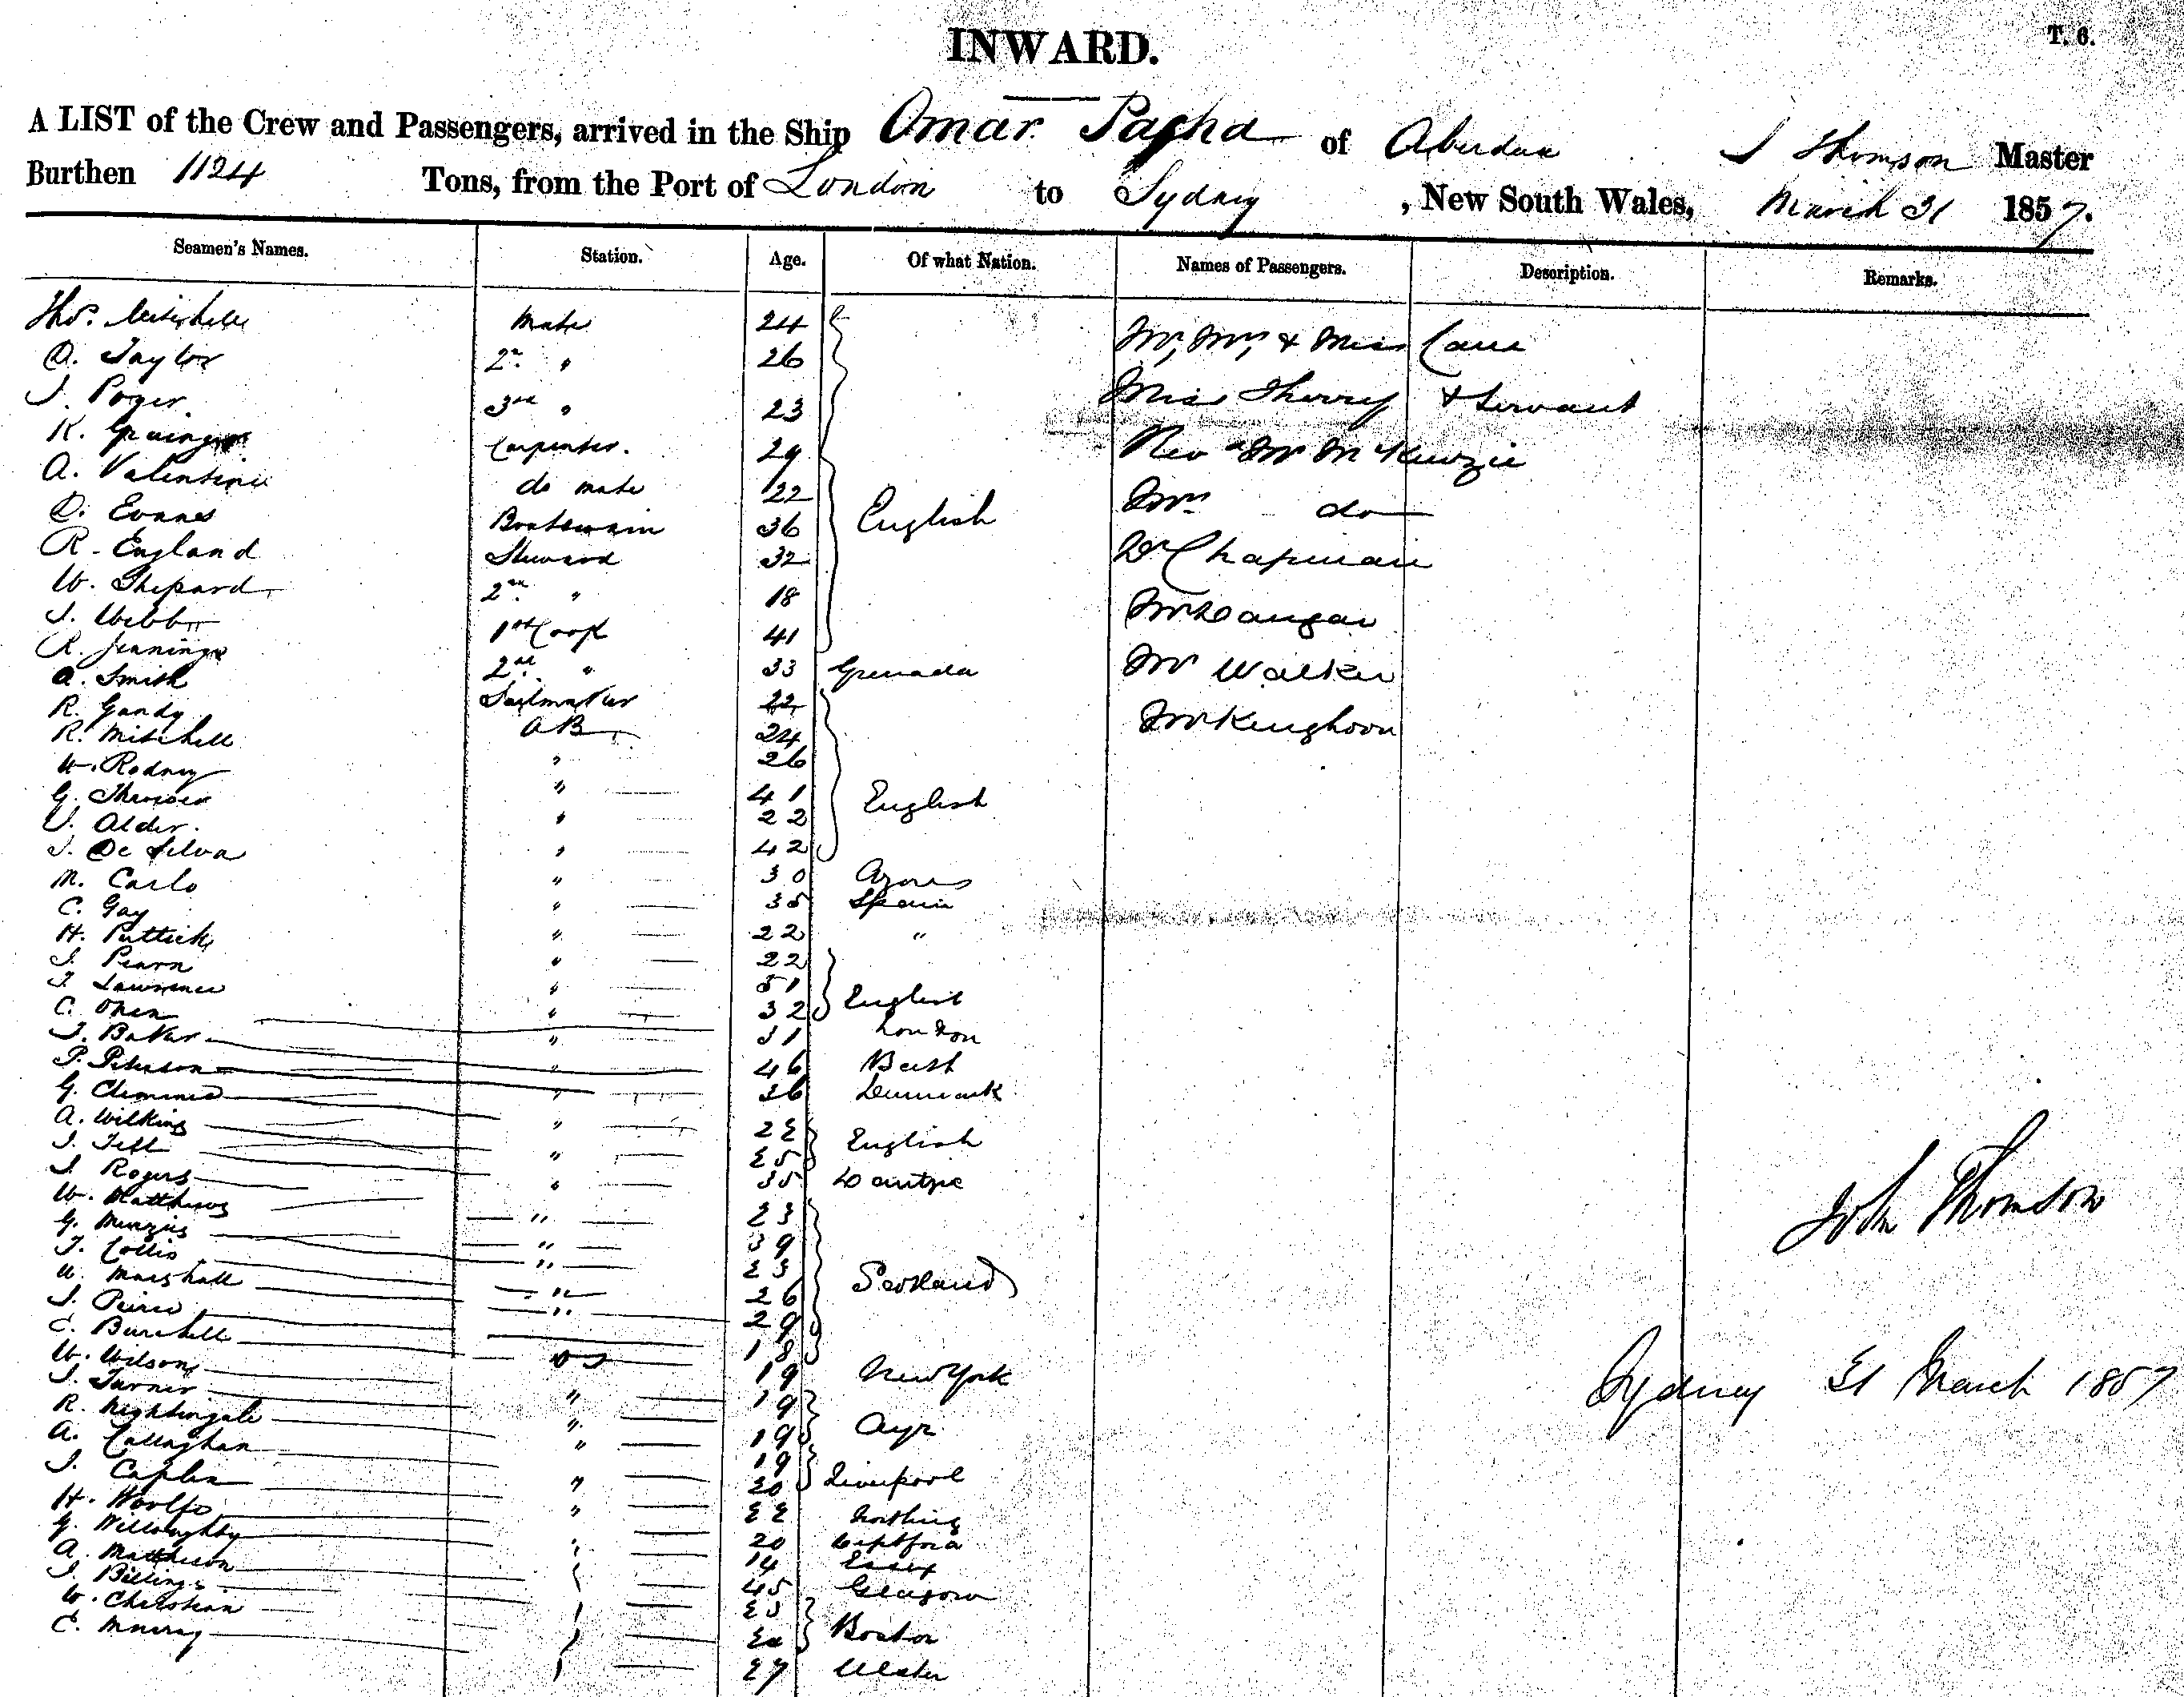 INWARD.
T. 6.
A LIST of the Crew and Passengers, arrived in the Ship Omar Pasha of Aberdeen J Thomson Master
Burthen 1124 Tons, from the Port of London to Sydney, New South Wales, March 31 1857.
Seamen's Names. Station. Age. Of what Nation. Names of Passengers. Description. Remarks.
Thos. Mitchell Mate 24 Mr, Mrs, & Miss Cane
D. Taylor 2nd " 26
J. Poger. 3rd " 23 Miss Therry & Servant
R. Grainger Carpenter. 29 Revd Mr McKenzie
A. Valentine do mate 22 Mrs do
D. Evans Boatswain 36 English
R. England Steward 32 Dr Chapman
W. Shepard 2nd " 18 Mr Dangar
J. Webb 1st Cook 41
R. Jennings 2nd " 33 Grenada Mr Walker
A. Smith Sailmaker 22
R. Gandy AB 24 Mr Kinghorn
R. Mitchell " 26
W. Rodney " 41 English
G. " 22
J. Alder. " 42
J. De Silva " 30 Azores
M. Carlo " 35 Spain
C. Gay " 22 "
H. Puttick " 22
J. Pearn " 31 English
J. Lawrence " 32
C. " 31 London
J. Baker " 46
P. Peterson " 36 Denmark
G. Clemmie " 22 English
A. Wilkins " 25
J. Tell " 35
J. Rogers " 23
W. Matthews " 39
G. Menzies " 23 Scotland
J. Collis " 26
W. Marshall " 29
J. Peirce 18
C. Burchell 19 New York
W. Wilson " 19 Ayr
J. Turner " 19
R. Nightingale " 19 Liverpool
A. Callaghan " 20
J. Caplin " 22
H. Woolfe 20 Deptford
G. Willoughby 14 Essex
A. Mathieson 45 Glasgow
J. Billings 23 Boston
W. Christian
C. Murray 27 Ulster
John Thomson
Sydney 31 March 1857